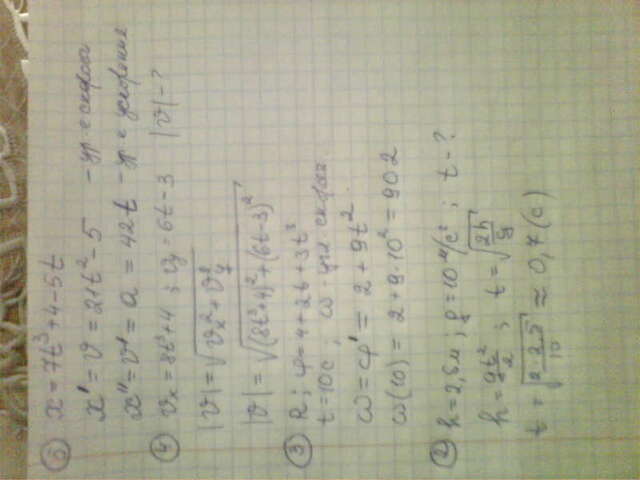 ⑤ x = 7t³ + 4 - 5t
x' = v = 21t² - 5 - ур-е скорости
x'' = v' = a = 42t - ур-е ускорения
④ vₓ = 8t³ + 4 ; vy = 6t - 3 |v| - ?
|v| = √(vₓ² + vy²)
|v| = √((8t³+4)² + (6t-3)²)
③ R ; φ = 4 + 2t + 3t³
t = 10c , ω - угл. скорость
ω = φ' = 2 + 9t²
ω(10) = 2 + 9·10² = 902
② h = 2,5м ; g = 10 м/с² ; t - ?
h = gt²/2 ; t = √(2h/g)
t = √(2·2,5/10) ≈ 0,7 (с)